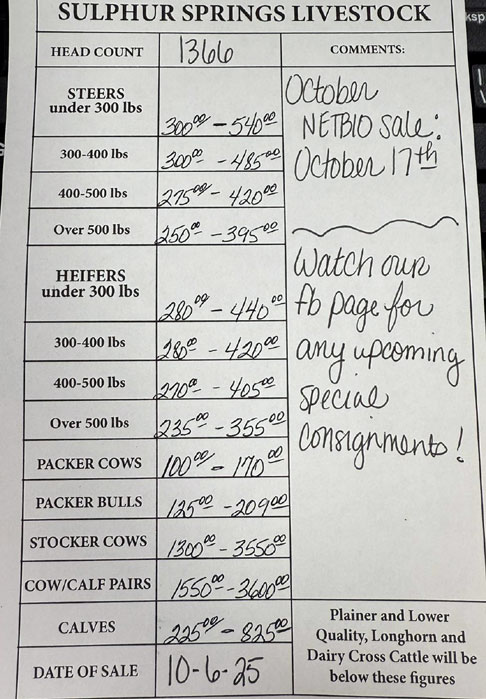 SULPHUR SPRINGS LIVESTOCK
HEAD COUNT 1366 COMMENTS:
STEERS
under 300 lbs 300.00 - 540.00
300-400 lbs 300.00 - 485.00
400-500 lbs 275.00 - 420.00
Over 500 lbs 250.00 - 395.00
HEIFERS
under 300 lbs 280.00 - 440.00
300-400 lbs 280.00 - 420.00
400-500 lbs 270.00 - 405.00
Over 500 lbs 235.00 - 355.00
PACKER COWS 100.00 - 170.00
PACKER BULLS 125.00 - 209.00
STOCKER COWS 1300.00 - 3550.00
COW/CALF PAIRS 1550.00 - 3600.00
CALVES 225.00 - 825.00
DATE OF SALE 10-6-25
October
NETBIO Sale:
October 17th
Watch our
fb page for
any upcoming
special
consignments!
Plainer and Lower
Quality, Longhorn and
Dairy Cross Cattle will be
below these figures